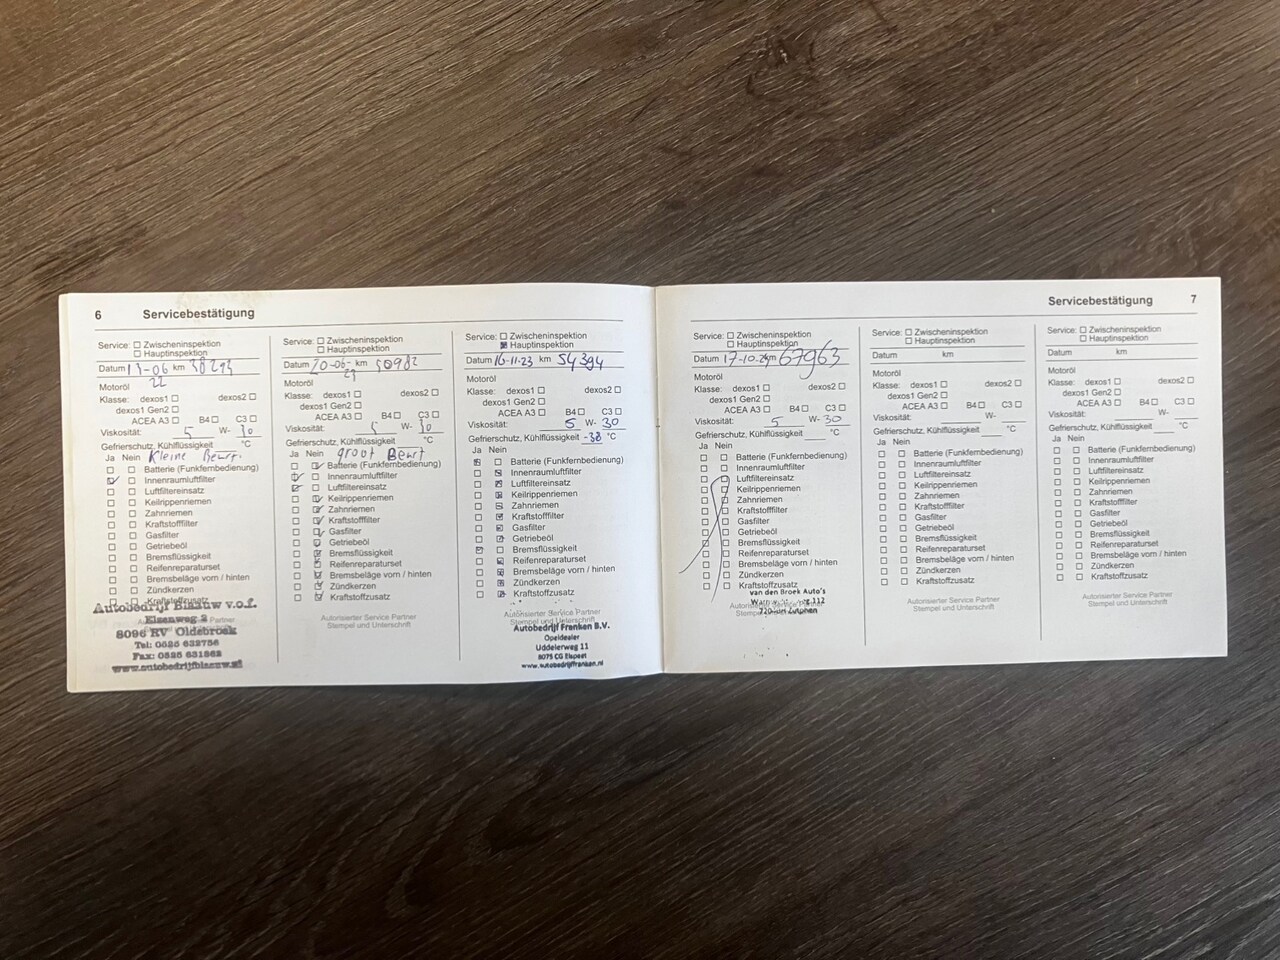 6 Servicebestätigung
Service: Zwischeninspektion
Hauptinspektion
Datum 13-06 km 38293
22
Motoröl
Klasse: dexos1 dexos2
dexos1 Gen2
ACEA A3 B4 C3
Viskosität: 5 W- 30
Gefrierschutz, Kühlflüssigkeit °C
Ja Nein Kleine Beurt.
Batterie (Funkfernbedienung)
Innenraumluftfilter
Luftfiltereinsatz
Keilrippenriemen
Zahnriemen
Kraftstofffilter
Gasfilter
Getriebeöl
Bremsflüssigkeit
Reifenreparaturset
Bremsbeläge vorn / hinten
Zündkerzen
Kraftstoffzusatz
Autobedrijf Blaauw v.o.f.
Eizenweg 2
8096 RV Oldebroek
Tel: 0525 632756
Fax: 0525 631862
www.autobedrijfblaauw.nl
Service: Zwischeninspektion
Hauptinspektion
Datum 20-06- km 50982
Motoröl
Klasse: dexos1 dexos2
dexos1 Gen2
ACEA A3 B4 C3
Viskosität: 5 W- 30
Gefrierschutz, Kühlflüssigkeit °C
Ja Nein groot Beurt
Batterie (Funkfernbedienung)
Innenraumluftfilter
Luftfiltereinsatz
Keilrippenriemen
Zahnriemen
Kraftstofffilter
Gasfilter
Getriebeöl
Bremsflüssigkeit
Reifenreparaturset
Bremsbeläge vorn / hinten
Zündkerzen
Kraftstoffzusatz
Autorisierter Service Partner
Stempel und Unterschrift
Service: Zwischeninspektion
Hauptinspektion
Datum 16-11-23 km 54394
Motoröl
Klasse: dexos1 dexos2
dexos1 Gen2
ACEA A3 B4 C3
Viskosität: 5 W- 30
Gefrierschutz, Kühlflüssigkeit -38 °C
Ja Nein
Batterie (Funkfernbedienung)
Innenraumluftfilter
Luftfiltereinsatz
Keilrippenriemen
Zahnriemen
Kraftstofffilter
Gasfilter
Getriebeöl
Bremsflüssigkeit
Reifenreparaturset
Bremsbeläge vorn / hinten
Zündkerzen
Kraftstoffzusatz
Autorisierter Service Partner
Stempel und Unterschrift
Autobedrijf Franken B.V.
Opeldealer
Uddelerweg 11
8075 CG Elspeet
www.autobedrijffranken.nl
Servicebestätigung 7
Service: Zwischeninspektion
Hauptinspektion
Datum 17-10-24 km 67963
Motoröl
Klasse: dexos1 dexos2
dexos1 Gen2
ACEA A3 B4 C3
Viskosität: 5 W- 30
Gefrierschutz, Kühlflüssigkeit °C
Ja Nein
Batterie (Funkfernbedienung)
Innenraumluftfilter
Luftfiltereinsatz
Keilrippenriemen
Zahnriemen
Kraftstofffilter
Gasfilter
Getriebeöl
Bremsflüssigkeit
Reifenreparaturset
Bremsbeläge vorn / hinten
Zündkerzen
Kraftstoffzusatz
van den Broek Auto's
112
Zutphen
Service: Zwischeninspektion
Hauptinspektion
Datum km
Motoröl
Klasse: dexos1 dexos2
dexos1 Gen2
ACEA A3 B4 C3
Viskosität: W-
Gefrierschutz, Kühlflüssigkeit °C
Ja Nein
Batterie (Funkfernbedienung)
Innenraumluftfilter
Luftfiltereinsatz
Keilrippenriemen
Zahnriemen
Kraftstofffilter
Gasfilter
Getriebeöl
Bremsflüssigkeit
Reifenreparaturset
Bremsbeläge vorn / hinten
Zündkerzen
Kraftstoffzusatz
Autorisierter Service Partner
Stempel und Unterschrift
Service: Zwischeninspektion
Hauptinspektion
Datum km
Motoröl
Klasse: dexos1 dexos2
dexos1 Gen2
ACEA A3 B4 C3
Viskosität: W-
Gefrierschutz, Kühlflüssigkeit °C
Ja Nein
Batterie (Funkfernbedienung)
Innenraumluftfilter
Luftfiltereinsatz
Keilrippenriemen
Zahnriemen
Kraftstofffilter
Gasfilter
Getriebeöl
Bremsflüssigkeit
Reifenreparaturset
Bremsbeläge vorn / hinten
Zündkerzen
Kraftstoffzusatz
Autorisierter Service Partner
Stempel und Unterschrift